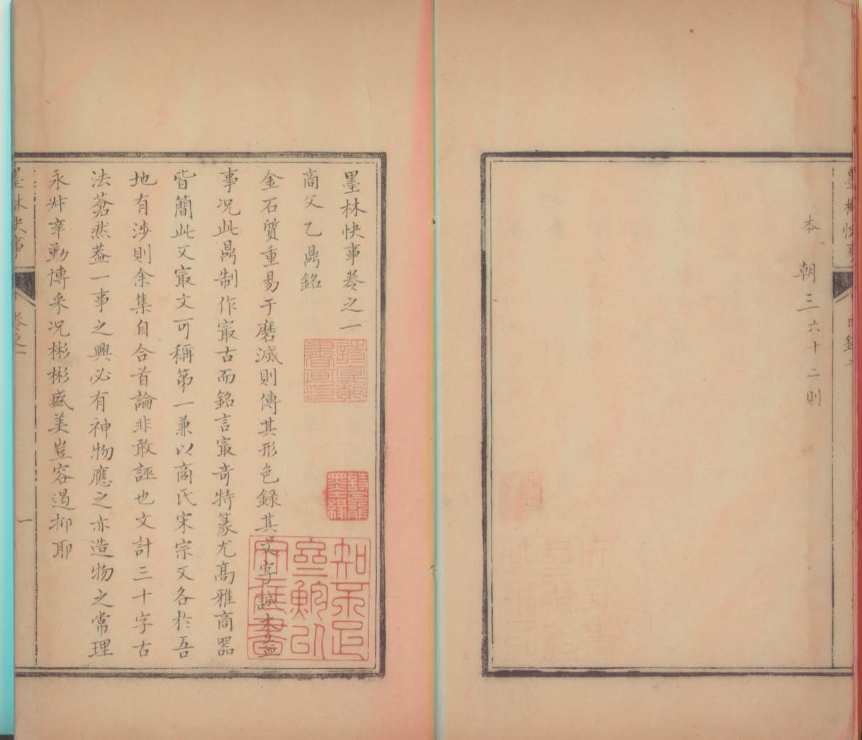 墨林快事 目錄
本朝三六十二則
墨林快事卷之一
商父乙鼎銘
金石質重易于磨滅則傳其形色錄其文字誠益
事况此鼎制作㝡古而銘言㝡奇特篆尤高雅商器
皆簡此文㝡文可稱第一兼以商氏宋宗文各於吾
地有涉則余集自合首論非敢誣也文計三十字古
法蒼然葢一事之興必有神物應之亦造物之常理
永叔辛勤博采况彬彬盛美豈容遏抑耶
墨林快事 卷之一 一
知不足齋鮑以文藏書